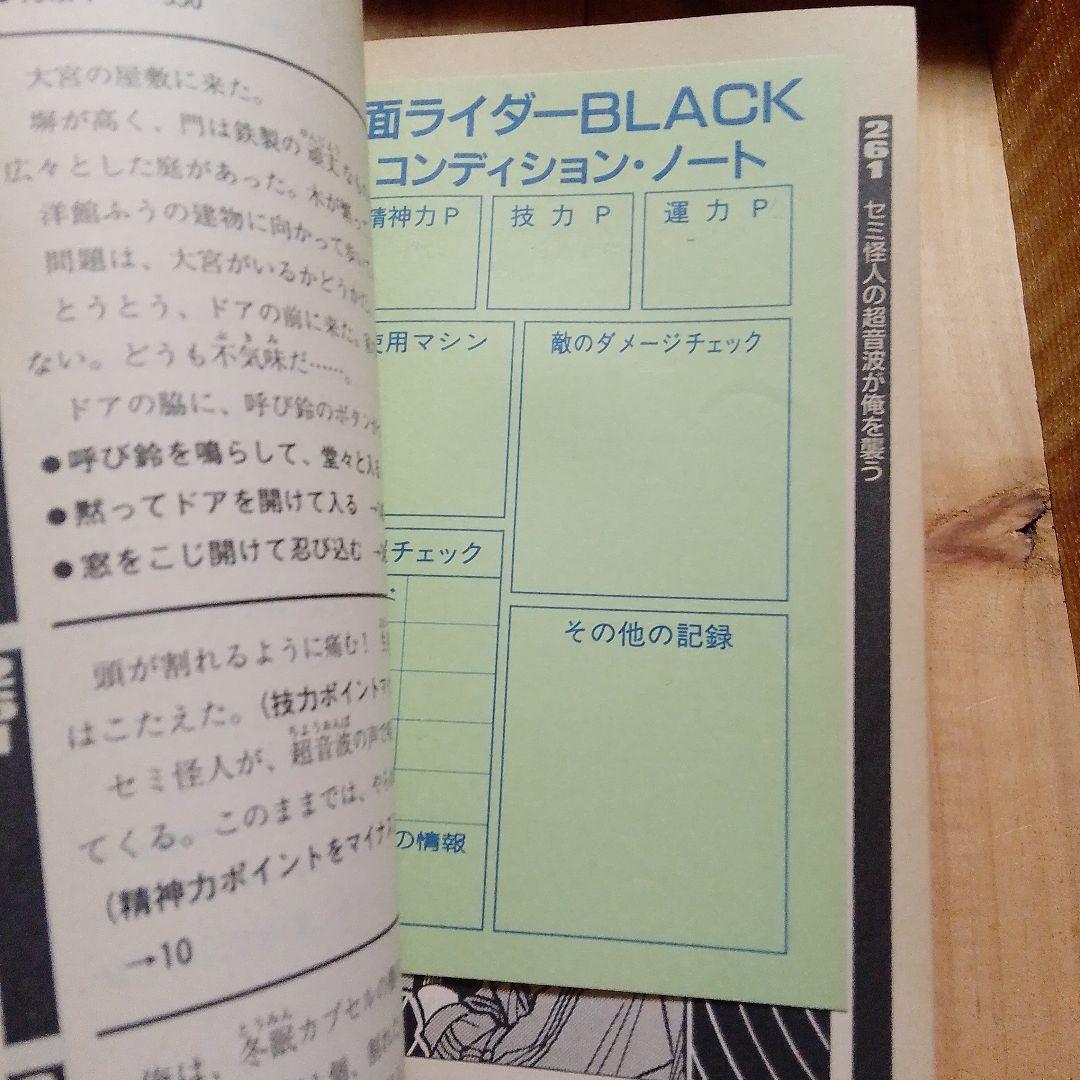 330
大宮の屋敷に来た。
塀が高く、門は鉄製の
広々とした庭があった。木が
洋館ふうの建物に向かって
問題は、大宮がいるかとうか
とうとう、ドアの前に来た。
ない。どうも不気味だ……。
ぶきみ
ドアの脇に、呼び鈴のボタン
●呼び鈴を鳴らして、堂々と入
●黙ってドアを開けて入る
●窓をこじ開けて忍び込む
261
頭が割れるように痛む!
はこたえた。(技力ポイント
ちょうおんぱ
セミ怪人が、超音波の声で
てくる。このままでは、やら
(精神力ポイントをマイナス
→10
とうみん
俺は、冬眠カプセルの
面ライダーBLACK
コンディション・ノート
精神力P
技力P
運力P
使用マシン
敵のダメージチェック
チェック
その他の記録
の情報
261 セミ怪人の超音波が俺を襲う